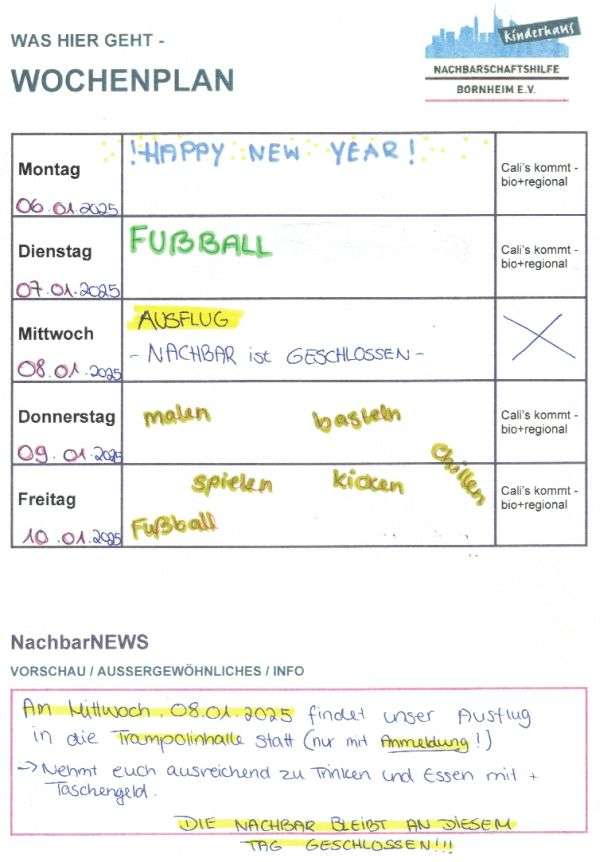 WAS HIER GEHT -
WOCHENPLAN
Kinderhaus
NACHBARSCHAFTSHILFE
BORNHEIM E.V.
Montag
06.01.2025
!HAPPY NEW YEAR!
Cali's kommt -
bio+regional
Dienstag
07.01.2025
FUßBALL
Cali's kommt -
bio+regional
Mittwoch
08.01.2025
AUSFLUG
- NACHBAR ist GESCHLOSSEN -
Donnerstag
09.01.2025
malen basteln
Cali's kommt -
bio+regional
chillen
Freitag
10.01.2025
spielen kicken
Fußball
Cali's kommt -
bio+regional
NachbarNEWS
VORSCHAU / AUSSERGEWÖHNLICHES / INFO
Am Mittwoch, 08.01.2025 findet unser Ausflug
in die Trampolinhalle statt (nur mit Anmeldung!)
→ Nehmt euch ausreichend zu Trinken und Essen mit +
Taschengeld.
DIE NACHBAR BLEIBT AN DIESEM
TAG GESCHLOSSEN!!!